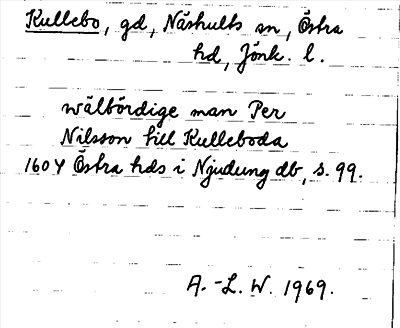 Kullebo, gd, Näshults sn, Östra
hd, Jönk. l.
wälbördige man Per
Nilsson till Kulleboda
1604 Östra hds i Njudung db, s. 99.
A.-L. W. 1969.